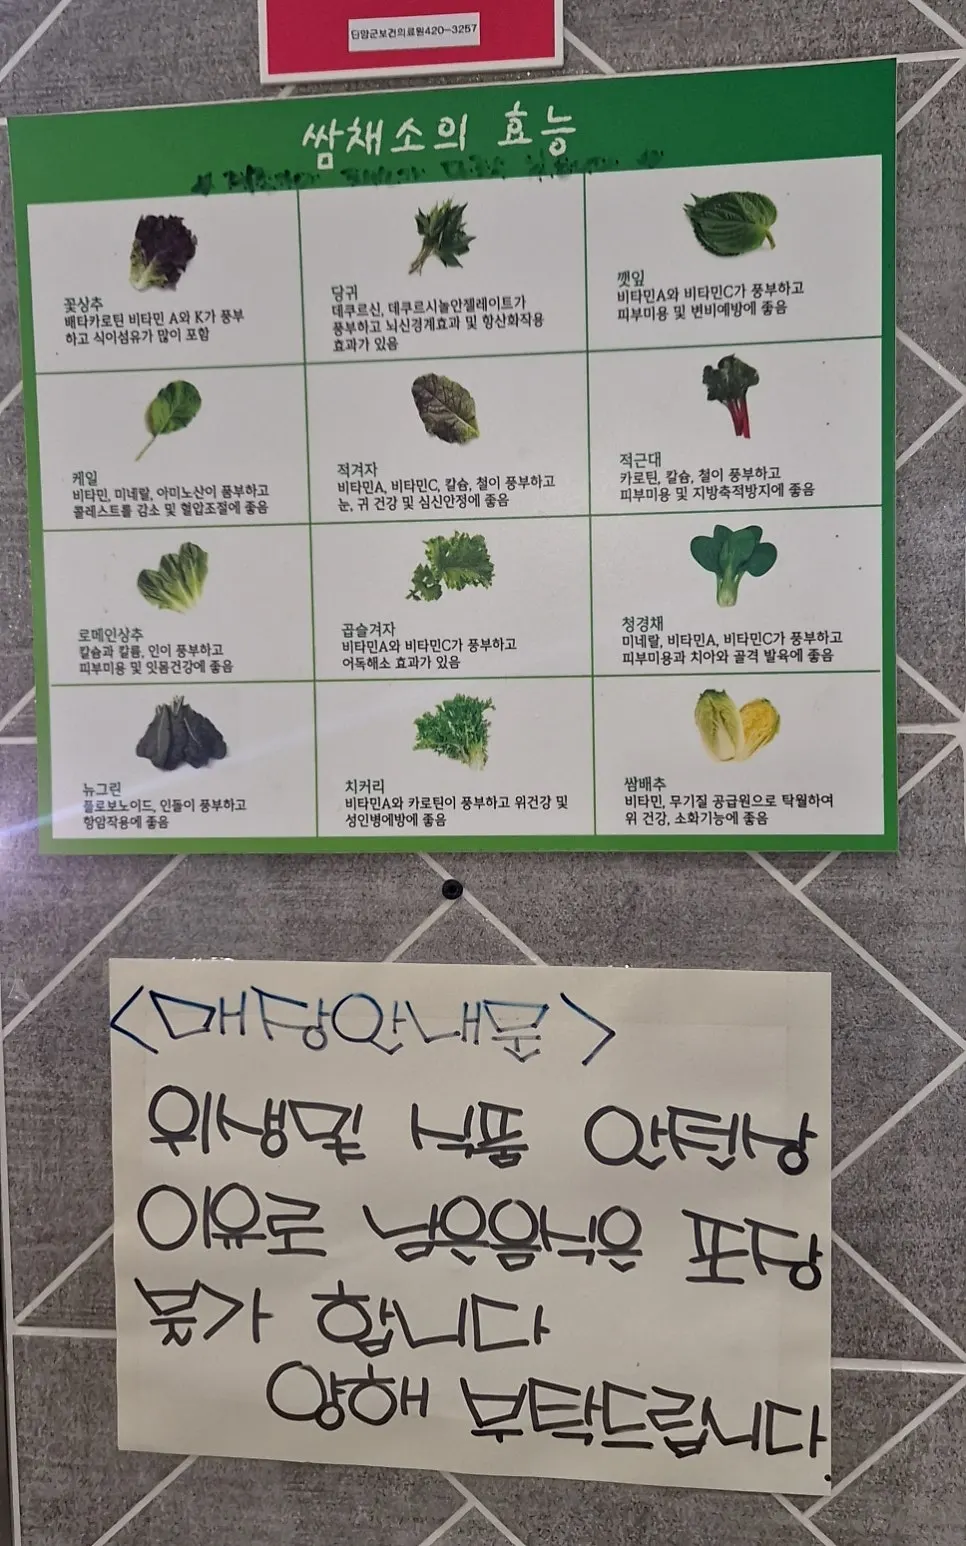 단양군보건의료원420-3257
쌈채소의 효능
꽃상추
배타카로틴 비타민 A와 K가 풍부
하고 식이섬유가 많이 포함
당귀
데쿠르신, 데쿠르시놀안젤레이트가
풍부하고 뇌신경계효과 및 항산화작용
효과가 있음
깻잎
비타민A와 비타민C가 풍부하고
피부미용 및 변비예방에 좋음
케일
비타민, 미네랄, 아미노산이 풍부하고
콜레스트롤 감소 및 혈압조절에 좋음
적겨자
비타민A, 비타민C, 칼슘, 철이 풍부하고
눈, 귀 건강 및 심신안정에 좋음
적근대
카로틴, 칼슘, 철이 풍부하고
피부미용 및 지방축적방지에 좋음
로메인상추
칼슘과 칼륨, 인이 풍부하고
피부미용 및 잇몸건강에 좋음
곱슬겨자
비타민A와 비타민C가 풍부하고
어독해소 효과가 있음
청경채
미네랄, 비타민A, 비타민C가 풍부하고
피부미용과 치아와 골격 발육에 좋음
뉴그린
플로보노이드, 인돌이 풍부하고
항암작용에 좋음
치커리
비타민A와 카로틴이 풍부하고 위건강 및
성인병예방에 좋음
쌈배추
비타민, 무기질 공급원으로 탁월하여
위 건강, 소화기능에 좋음
<매장안내문>
위생및 식품 안전상
이유로 남은음식은 포장
붗가 합니다
양해 부탁드립니다.